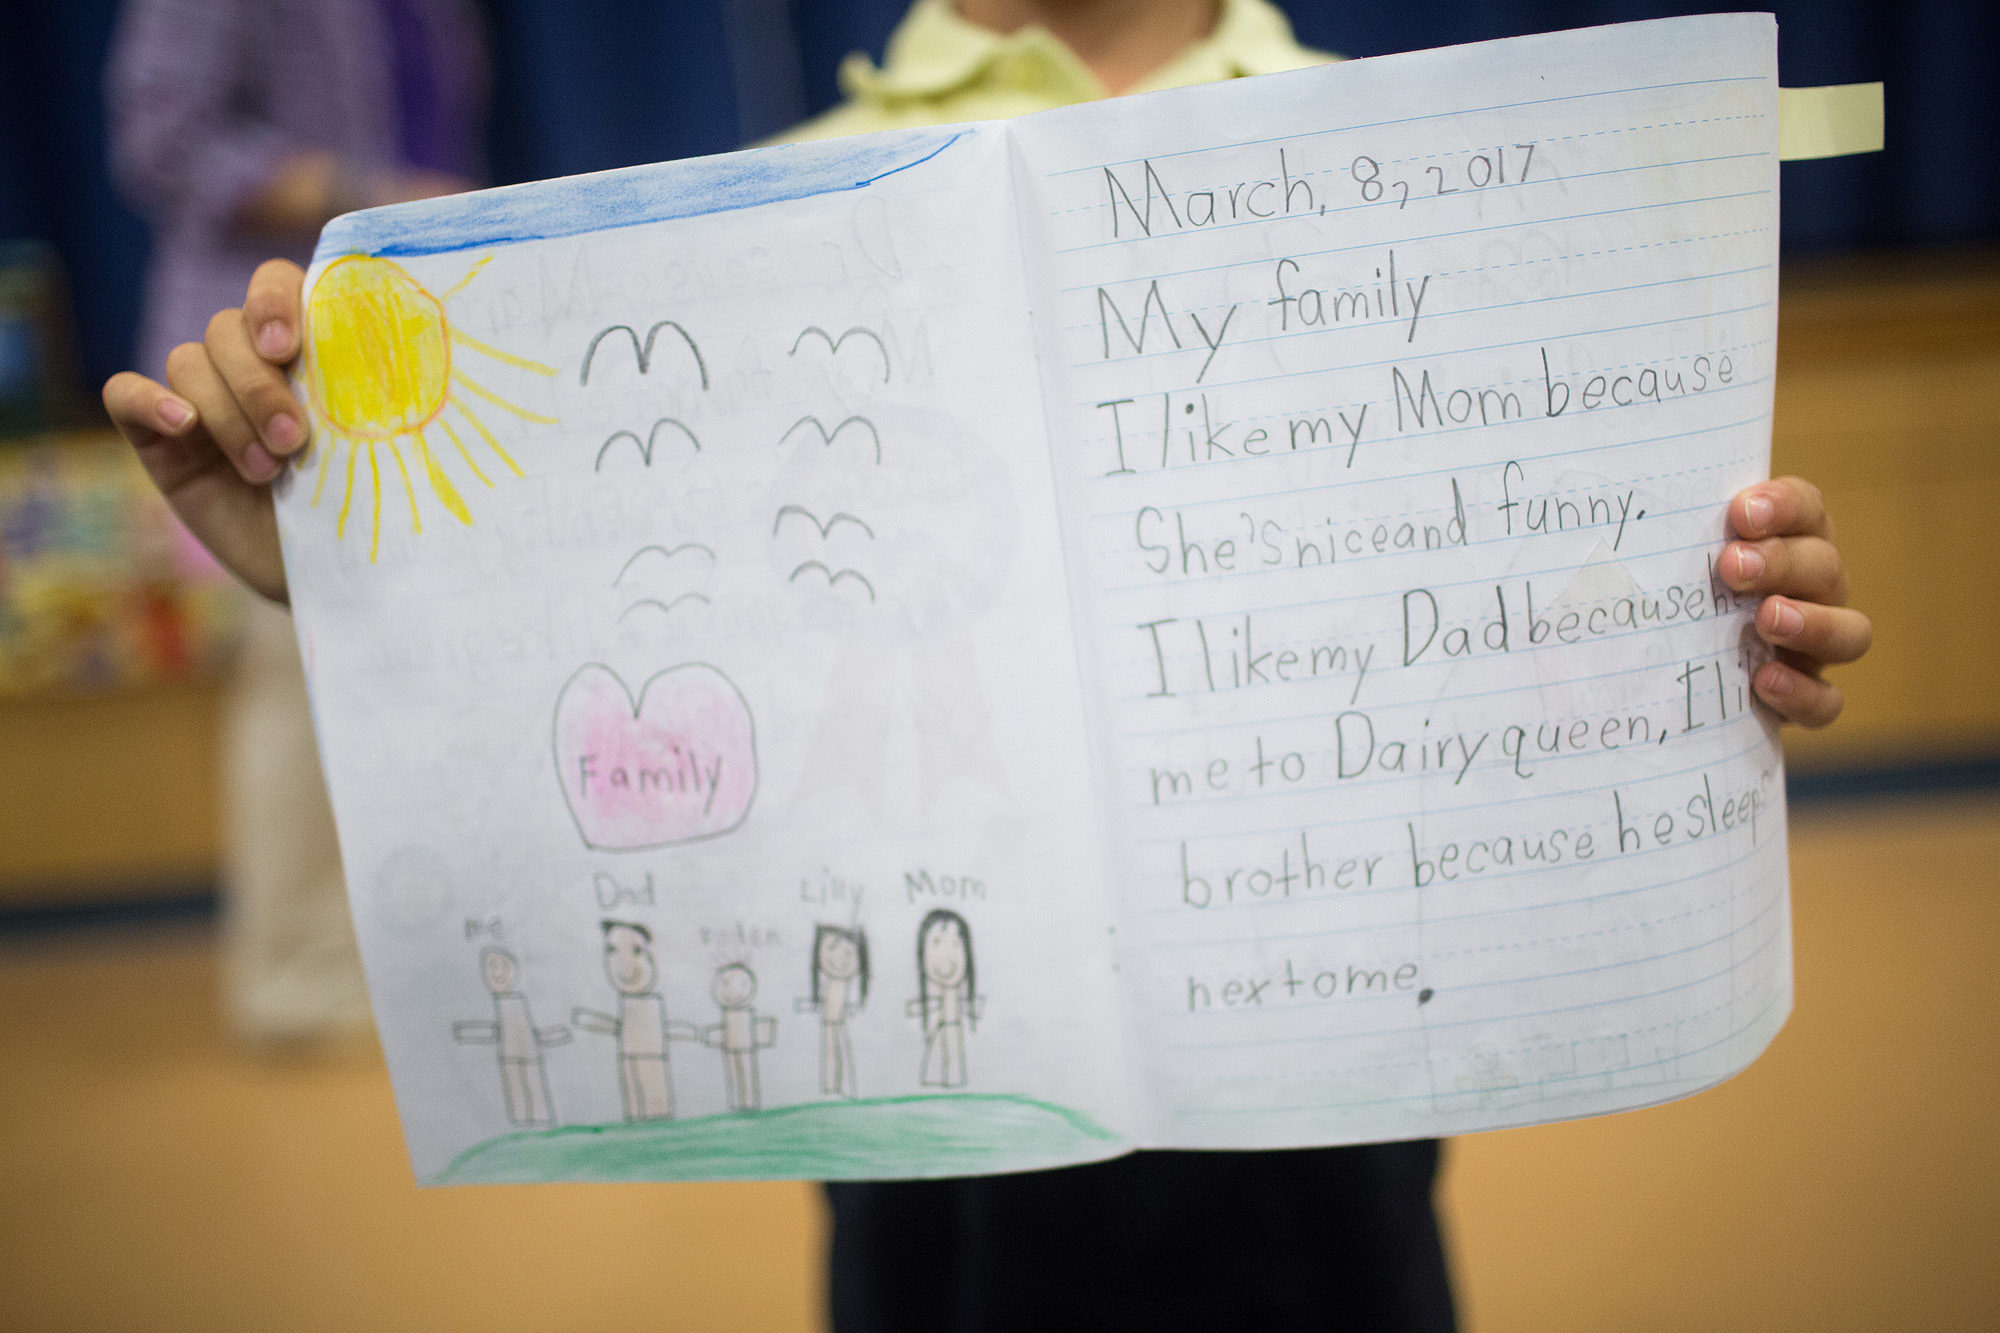 Family
Dad
Lilly
Mom
me
March, 8, 2017
My family
I like my Mom because
She's nice and funny.
I like my Dad because
me to Dairy queen, I
brother because he sleeps
next to me.